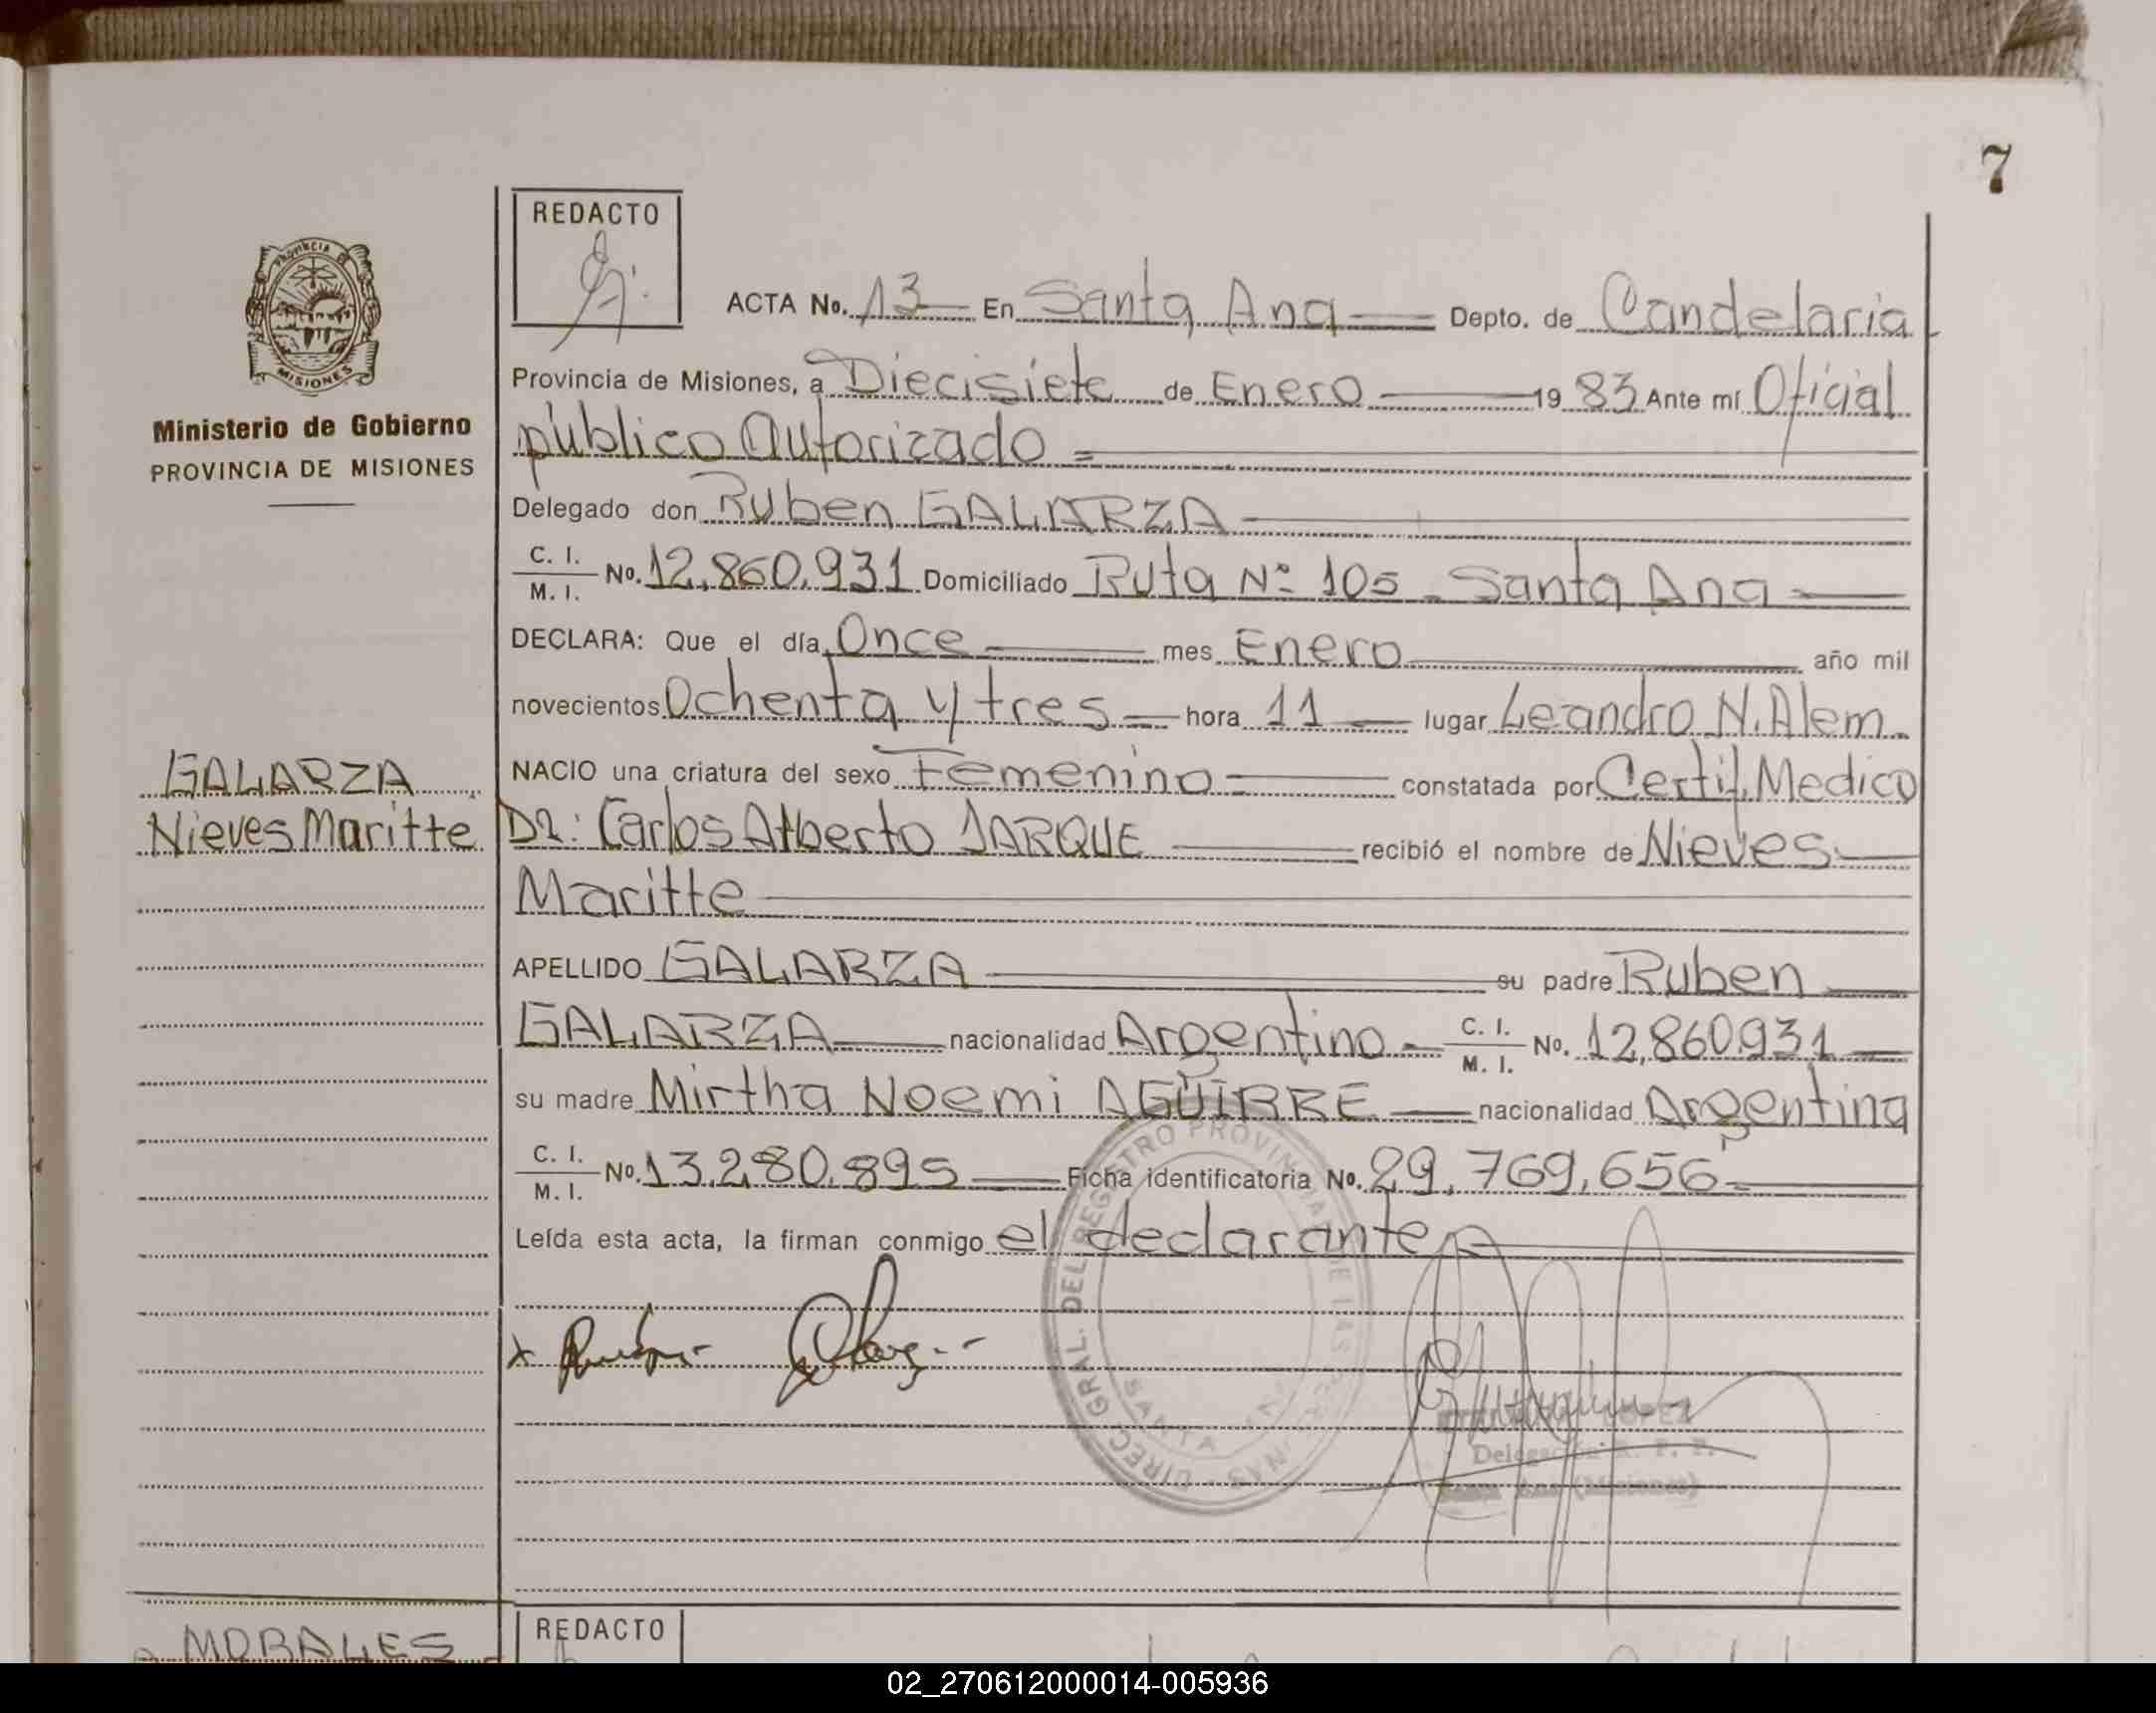 7
REDACTO
PROVINCIA
MISIONES
ACTA No. 13 En Santa Ana Depto. de Candelaria
Provincia de Misiones, a Diecisiete de Enero 1983 Ante mí Oficial
público Autorizado =
Ministerio de Gobierno
PROVINCIA DE MISIONES
Delegado don Ruben GALARZA
C. I.
M. I. No. 12,860,931 Domiciliado Ruta Nº 105 - Santa Ana
DECLARA: Que el día Once mes Enero año mil
novecientos Ochenta y tres hora 11 lugar Leandro N. Alem.
GALARZA
Nieves Maritte
NACIO una criatura del sexo Femenino constatada por Certif. Medico
Dr: Carlos Alberto JARQUE recibió el nombre de Nieves
Maritte
APELLIDO GALARZA su padre Ruben
GALARZA nacionalidad Argentino C. I.
M. I. No. 12,860.931
su madre Mirtha Noemi AGÜIRRE nacionalidad Argentina
C. I.
M. I. No. 13,280,895 Ficha identificatoria No. 29,769,656
Leída esta acta, la firman conmigo el declarante
DIREC. GRAL. DEL REGISTRO PROVINCIAL DE LAS
SANTA
Delegación R. P. P.
(Misiones)
MORALES
REDACTO
02_270612000014-005936